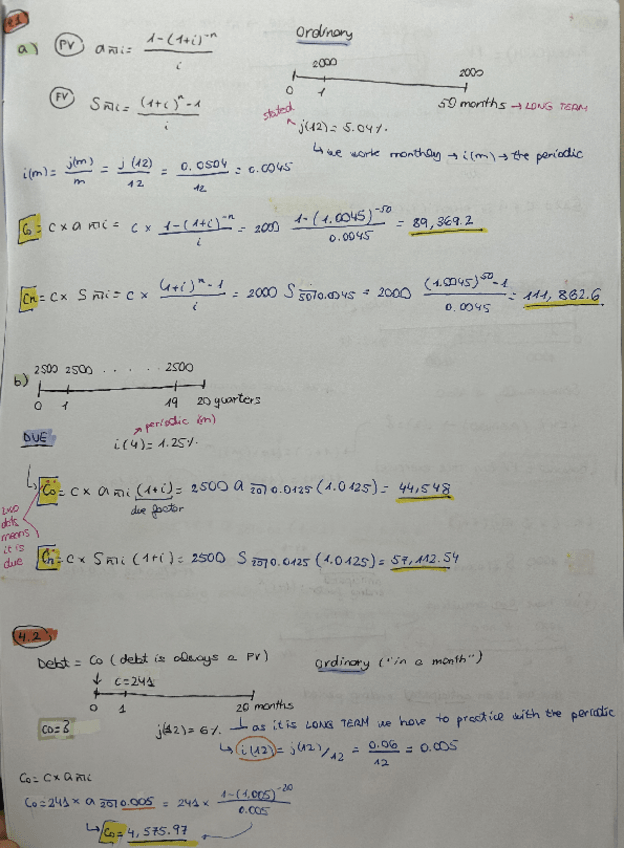 4.1
Ordinary
a) PV a n̅|i = 1-(1+i)^-n / i
2000 2000
0 1 50 months → LONG TERM
FV S n̅|i = (1+i)^n -1 / i
stated
j(12) = 5.04%.
↳ we work monthly → i(m) → the periodic
i(m) = j(m)/m = j(12)/12 = 0.0504/12 = 0.0045
C0 = C x a n̅|i = C x 1-(1+i)^-n / i = 2000 1-(1.0045)^-50 / 0.0045 = 89,369.2
Cn = C x S n̅|i = C x (1+i)^n -1 / i = 2000 S 50|0.0045 = 2000 (1.0045)^50 -1 / 0.0045 = 111,862.6
2500 2500 . . . . . 2500
b)
0 1 19 20 quarters
periodic i(m)
DUE i(4) = 1.25%.
↳ C̈0 = C x a n̅|i (1+i) = 2500 a 20|0.0125 (1.0125) = 44,548
due factor
two dots means it is due
C̈n = C x S n̅|i (1+i) = 2500 S 20|0.0125 (1.0125) = 57,112.54
4.2
Debt = C0 (debt is always a PV) Ordinary ("in a month")
↓ C=241
0 1 20 months
C0=?
j(12) = 6%. as it is LONG TERM we have to practice with the periodic
↳ i(12) = j(12)/12 = 0.06/12 = 0.005
C0 = C x a n̅|i
C0 = 241 x a 20|0.005 = 241 x 1-(1.005)^-20 / 0.005
↳ C0 = 4,575.97